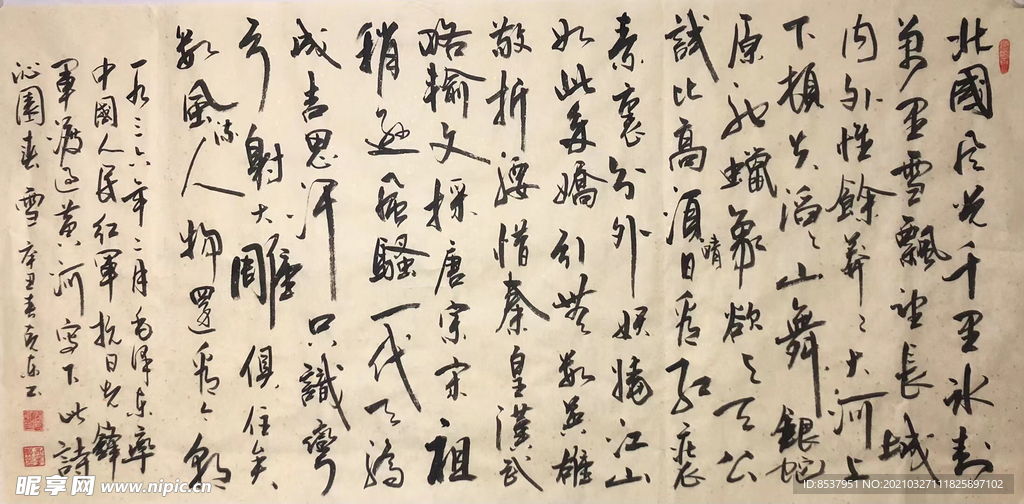 北國風光千里冰封
萬里雪飄望長城
內外惟餘莽〻大河上
下頓失滔〻山舞銀蛇
原馳蠟象欲與天公
試比高須晴日看紅莊
素裹分外妖嬈江山
如此多嬌引無數英雄
敬折腰惜秦皇漢武
略輸文採唐宗宋祖
稍遜風騷一代天驕
成吉思汗只識彎
弓射大雕俱往矣
數風流人物還看今朝
一九三六年二月毛澤東率
中國人民紅軍抗日先鋒
軍渡過黃河寫下此詩
沁園春 雪 辛丑春
昵享网 www.nipic.cn
ID:8537951 NO:20210327111825897102